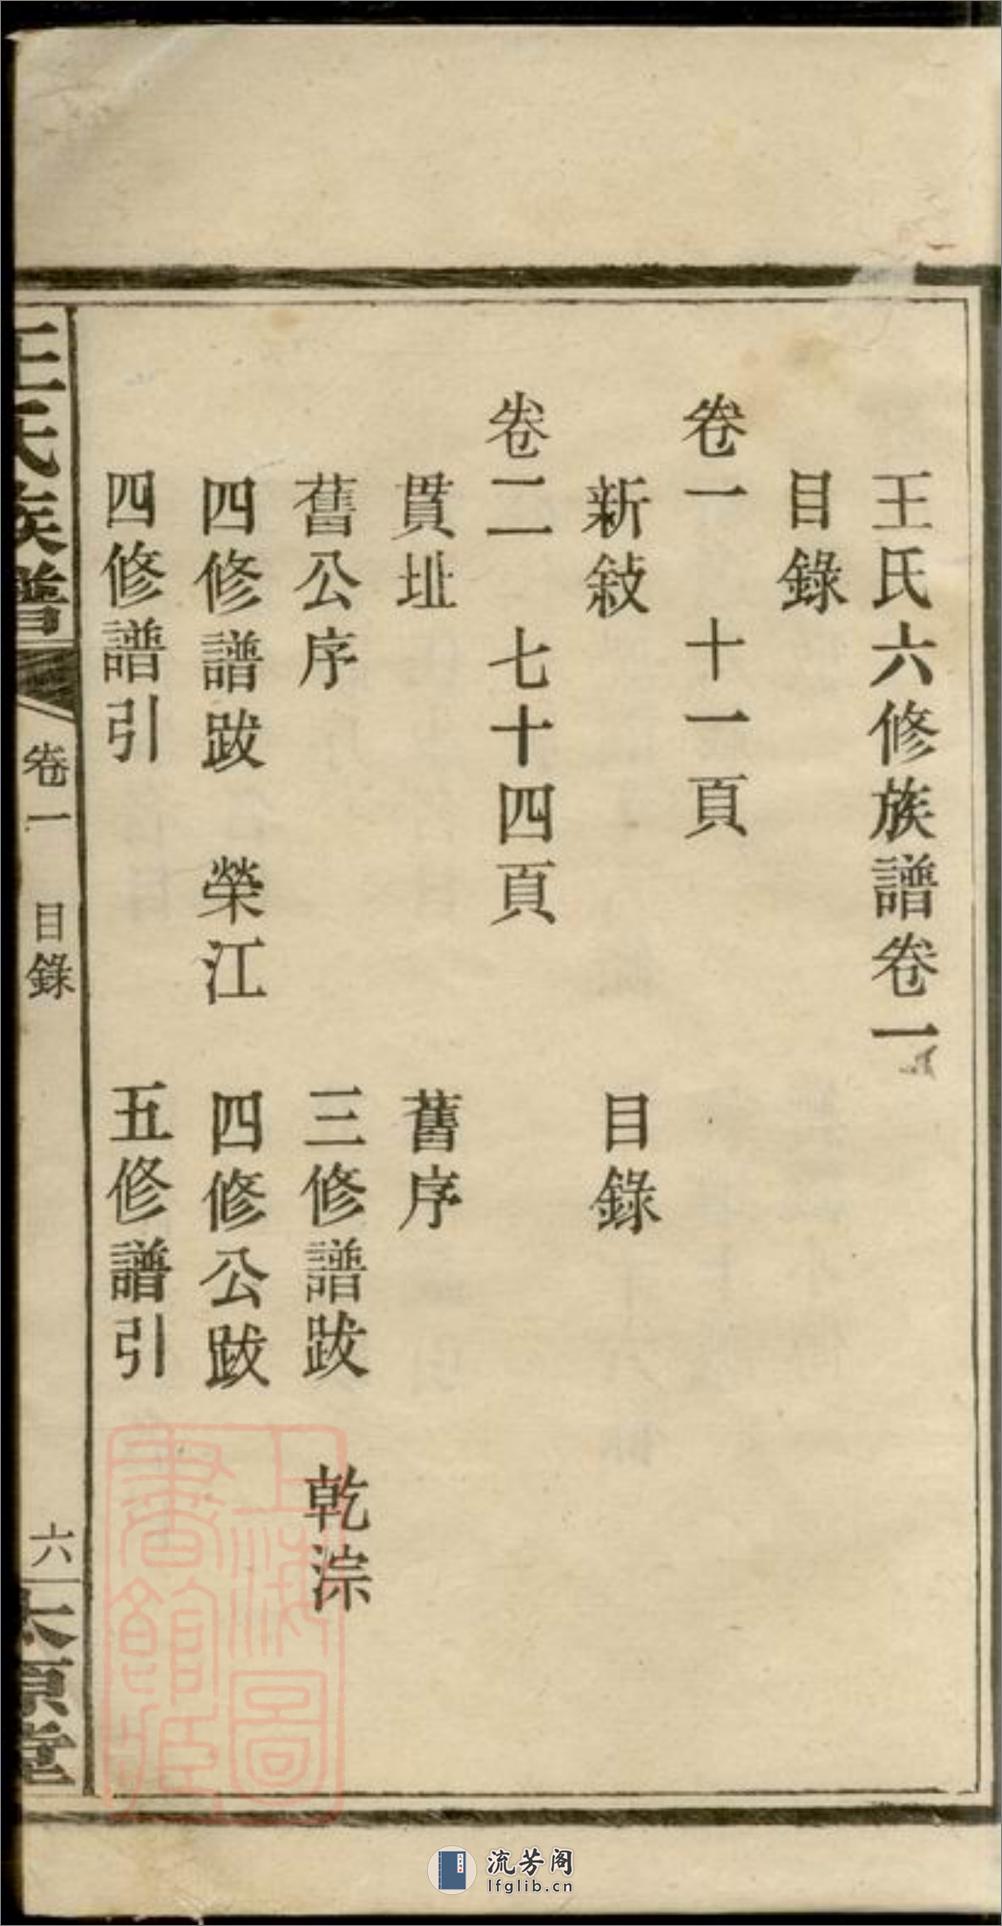 王氏六修族譜卷一
目錄
卷一 十一頁
新敍 目錄
卷二 七十四頁
貫址 舊序
舊公序 三修譜跋 乾淙
四修譜跋 榮江 四修公跋
四修譜引 五修譜引
王氏族譜 卷一 目錄 六 太原堂
上海圖書館藏
流芳阁
lfglib.cn